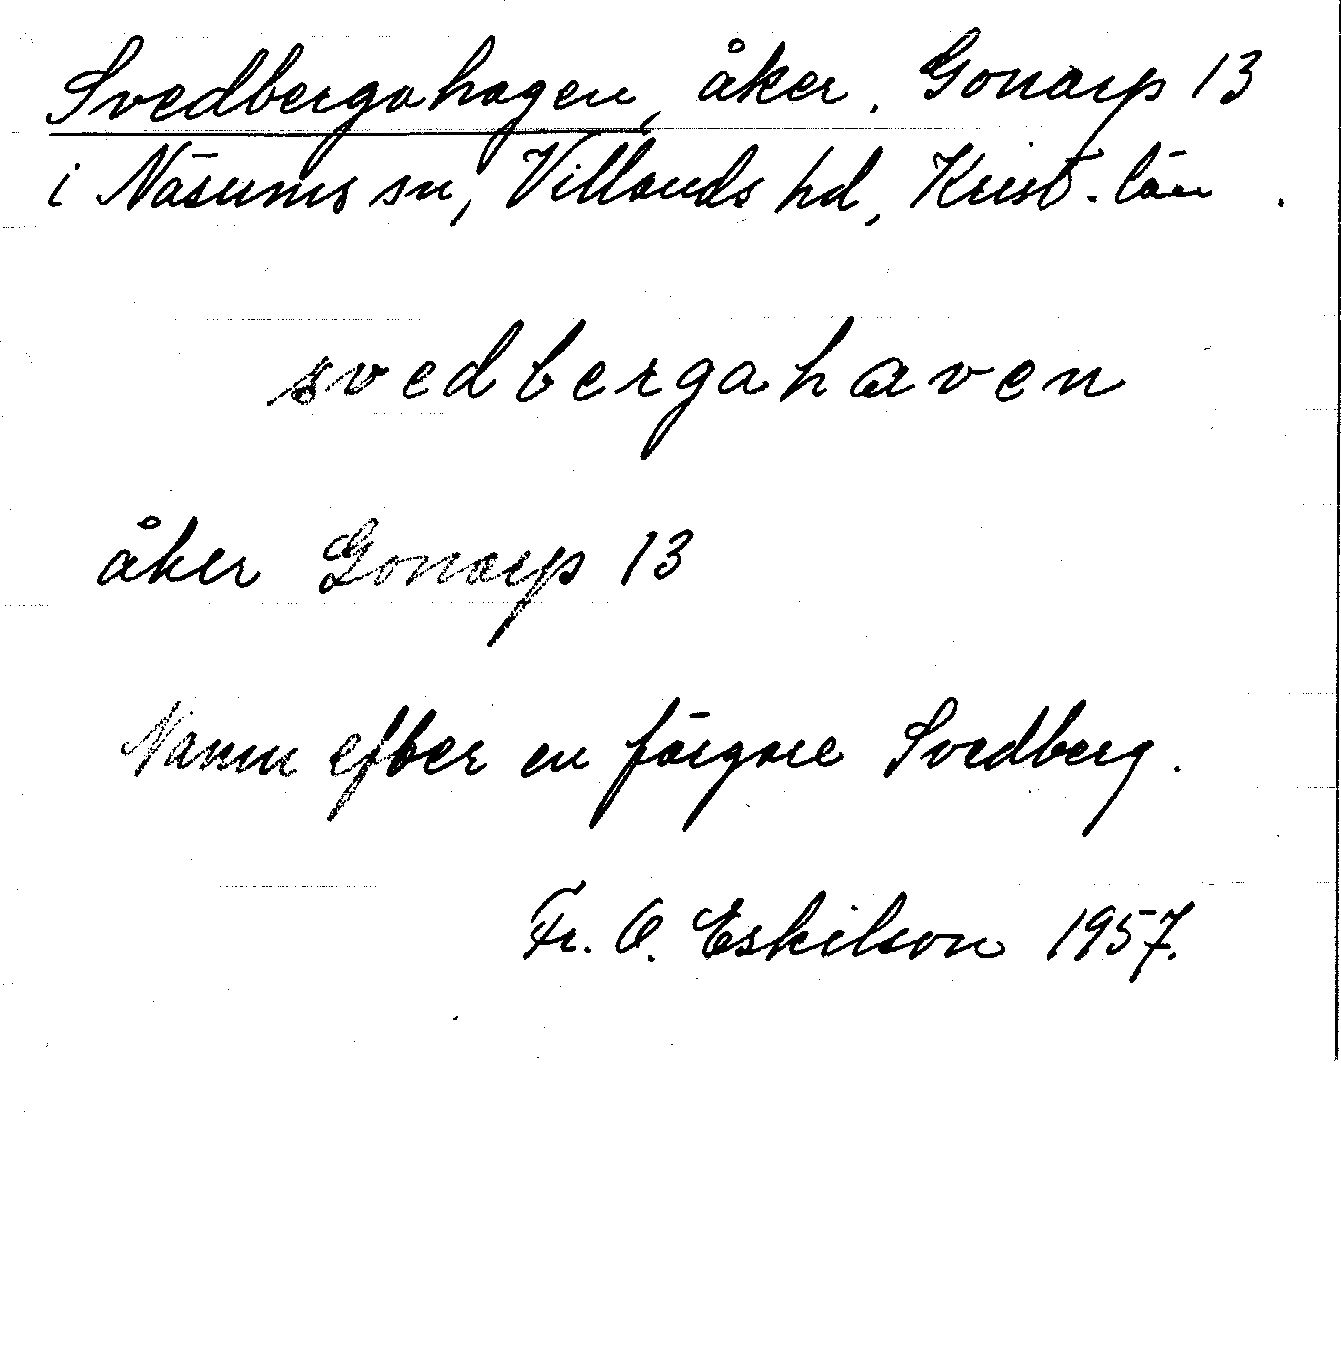 Svedbergahagen, åker, Gonarp 13
i Näsums sn, Villands hd, Krist. län.
svedbergahaven
åker Gonarp 13
Namn efter en färgare Svedberg.
Fr. O. Eskilson 1957.